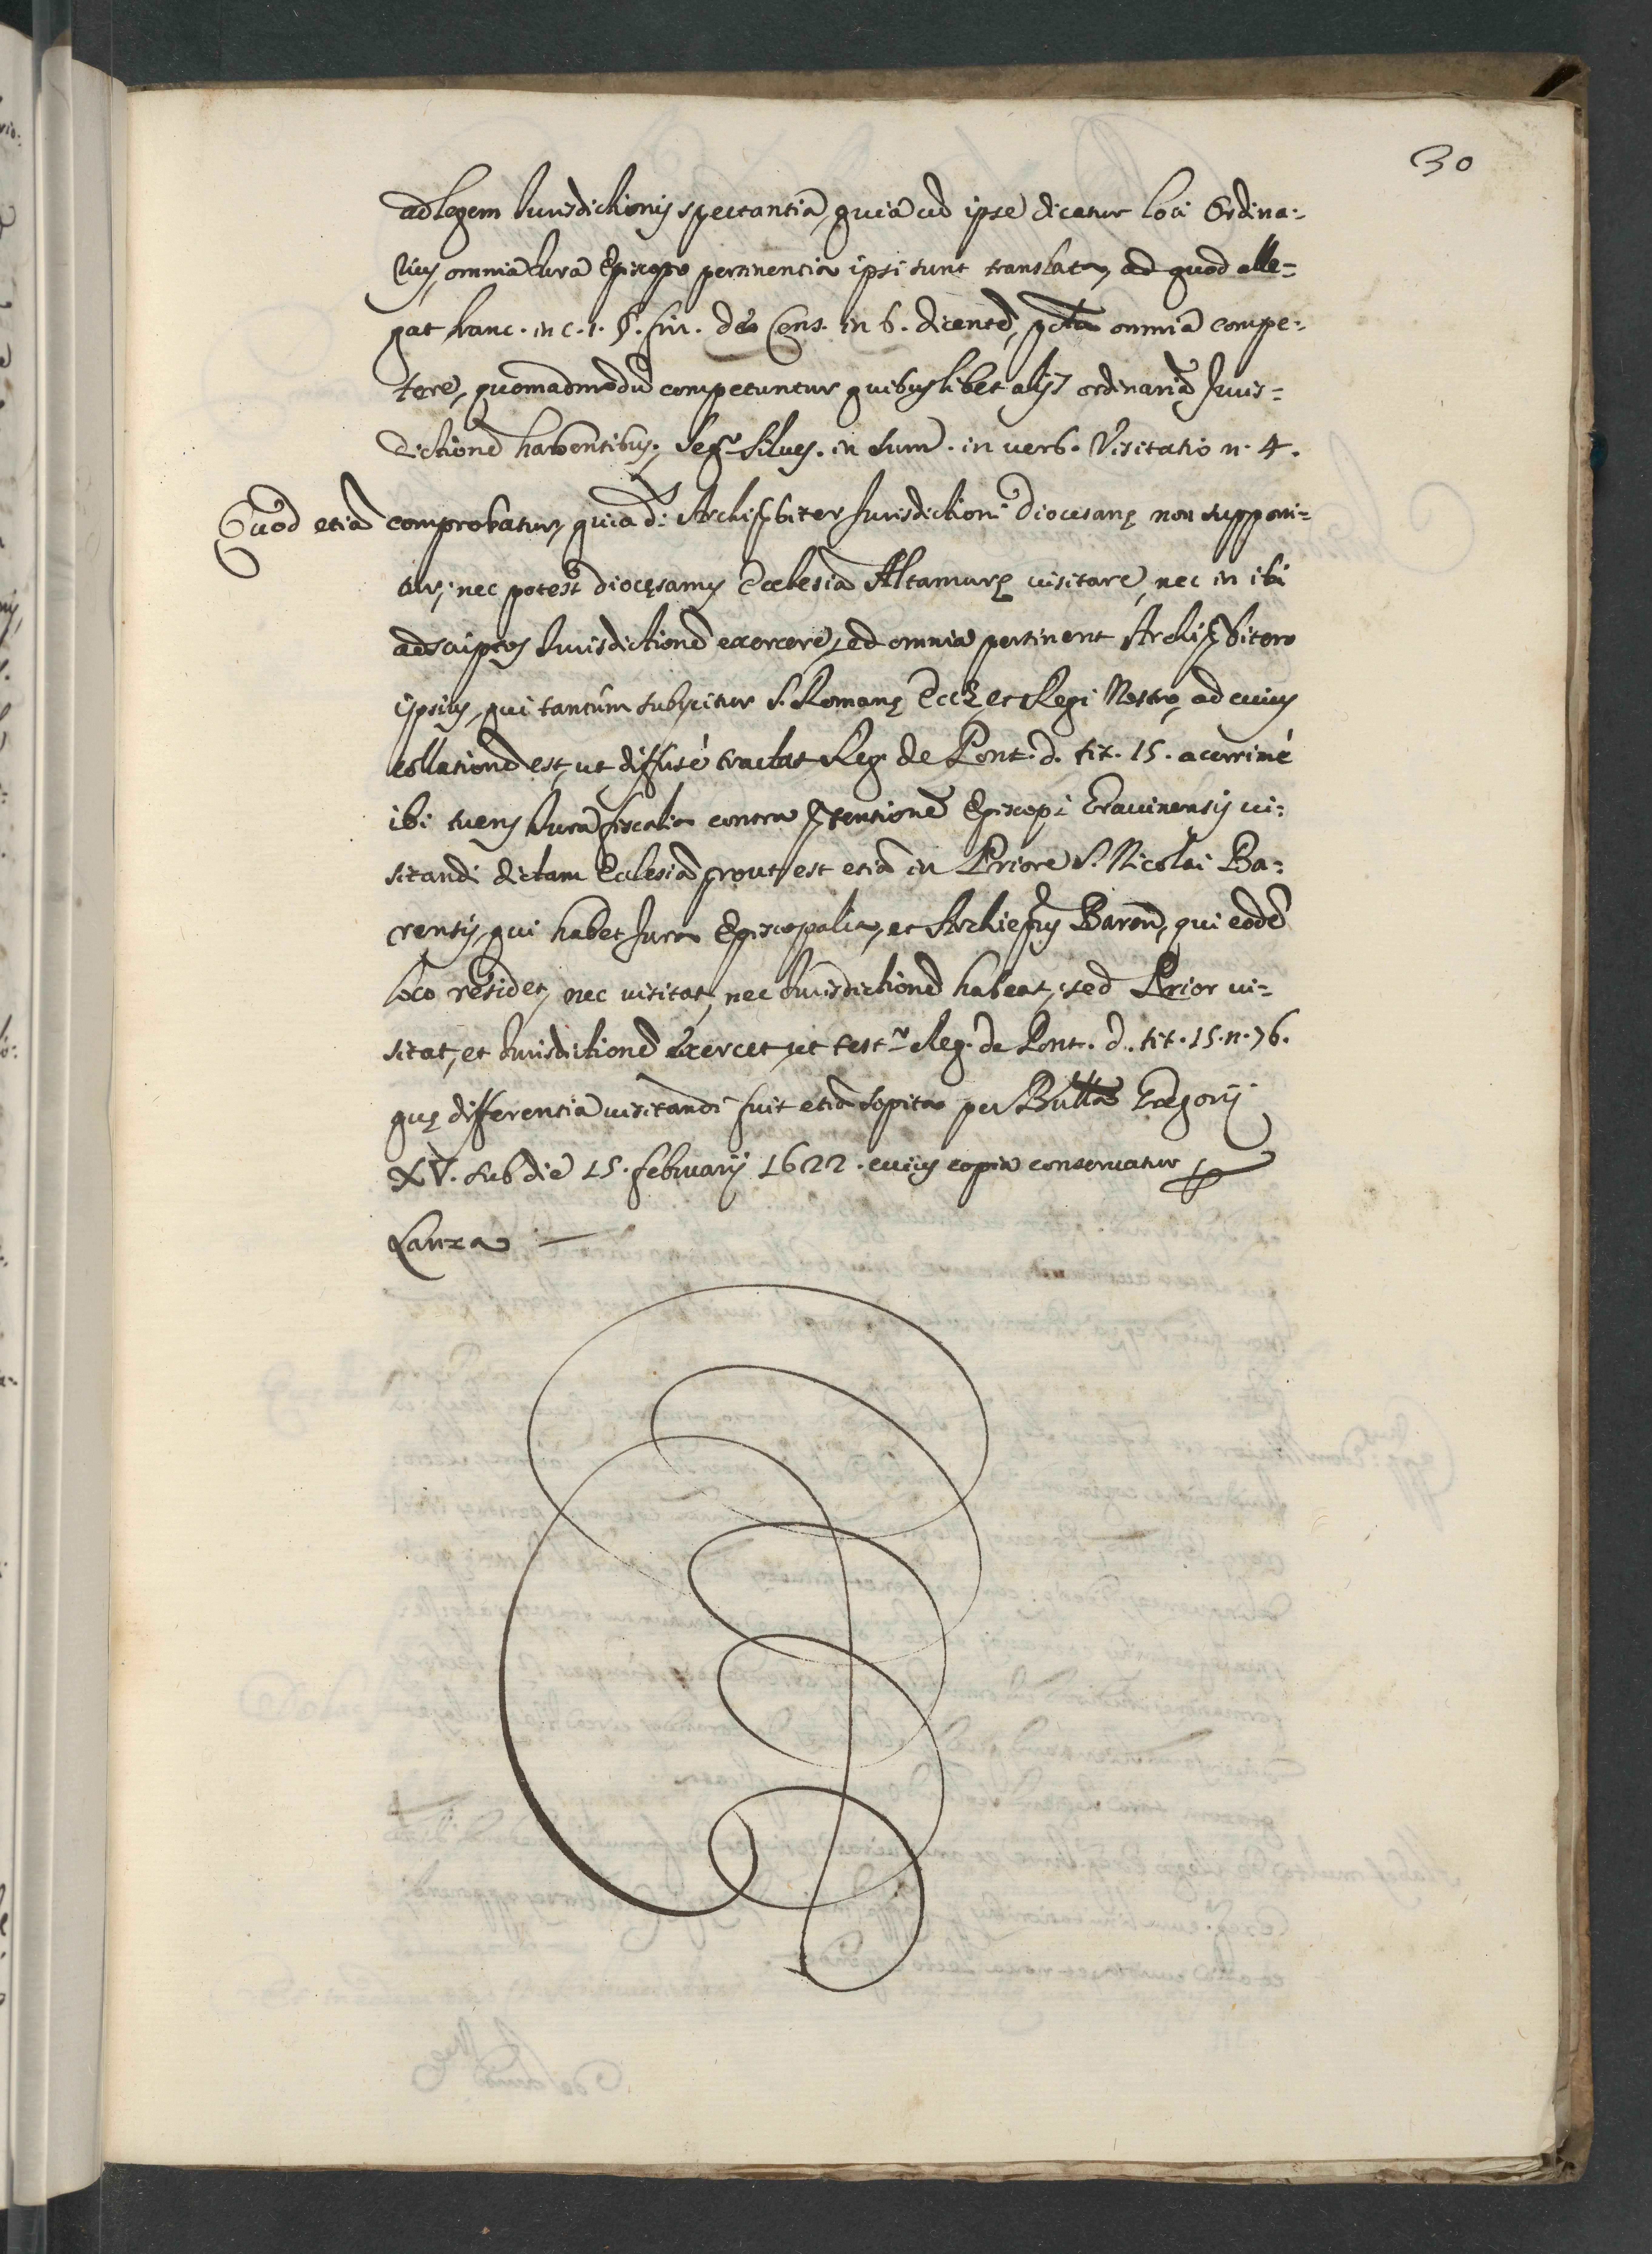 30
ad legem Iurisdictionis spectantia, quia cũ ipse dicatur loci Ordina:
rius, omnia Iura Episcopo pertinentia ipsi sunt translata, ad quod alle=
gat franc. in c. 1. §. fin. de Cens. in 6. dicentẽ, omnia compe:
tere, quomadmodũ competuntur quibuslibet alijs ordinariã Iuris=
dictionẽ habentibus, seqr Silves. in sum. in verb. Visitatio n. 4.
Quod etiã comprobatur, quia d. Archip̃biter Iurisdictioni Diocesanę non supponi=
tur, nec potest diocęsanus Ecclesiã Altamurę visitare, nec in ibi
adscriptos Iurisdictionẽ exercere, sed omnia pertinent Archip̃bitero
ipsius, qui tantùm subijcitur S. Romanę Eccłę, et Regi Nostro, ad cuius
collationẽ est, ut diffusè tractat Reg. de Pont. d. tit. 15. acerrimè
ibi tuens Iura fiscalia contra p̃tensionẽ Episcopi Gravinensis vi:
sitandi dictam Ecclesiã, prout est etiã in Priore S. Nicolai Ba:
rensis, qui habet Iura Episcopalia, et Archiep̃us Baren̄, qui eodẽ
loco residet, nec visitat, nec Iurisdictionẽ habeat, sed Prior vi=
sitat, et Iurisdictionẽ exercet, ut testr Reg. de Pont. d. tit. 15. n. 76.
quę differentia visitandi fuit etiã sopita per Bullã Gregorij
XV. sub die 15. februarij 1622. cuius copia conservatur
Lanza —